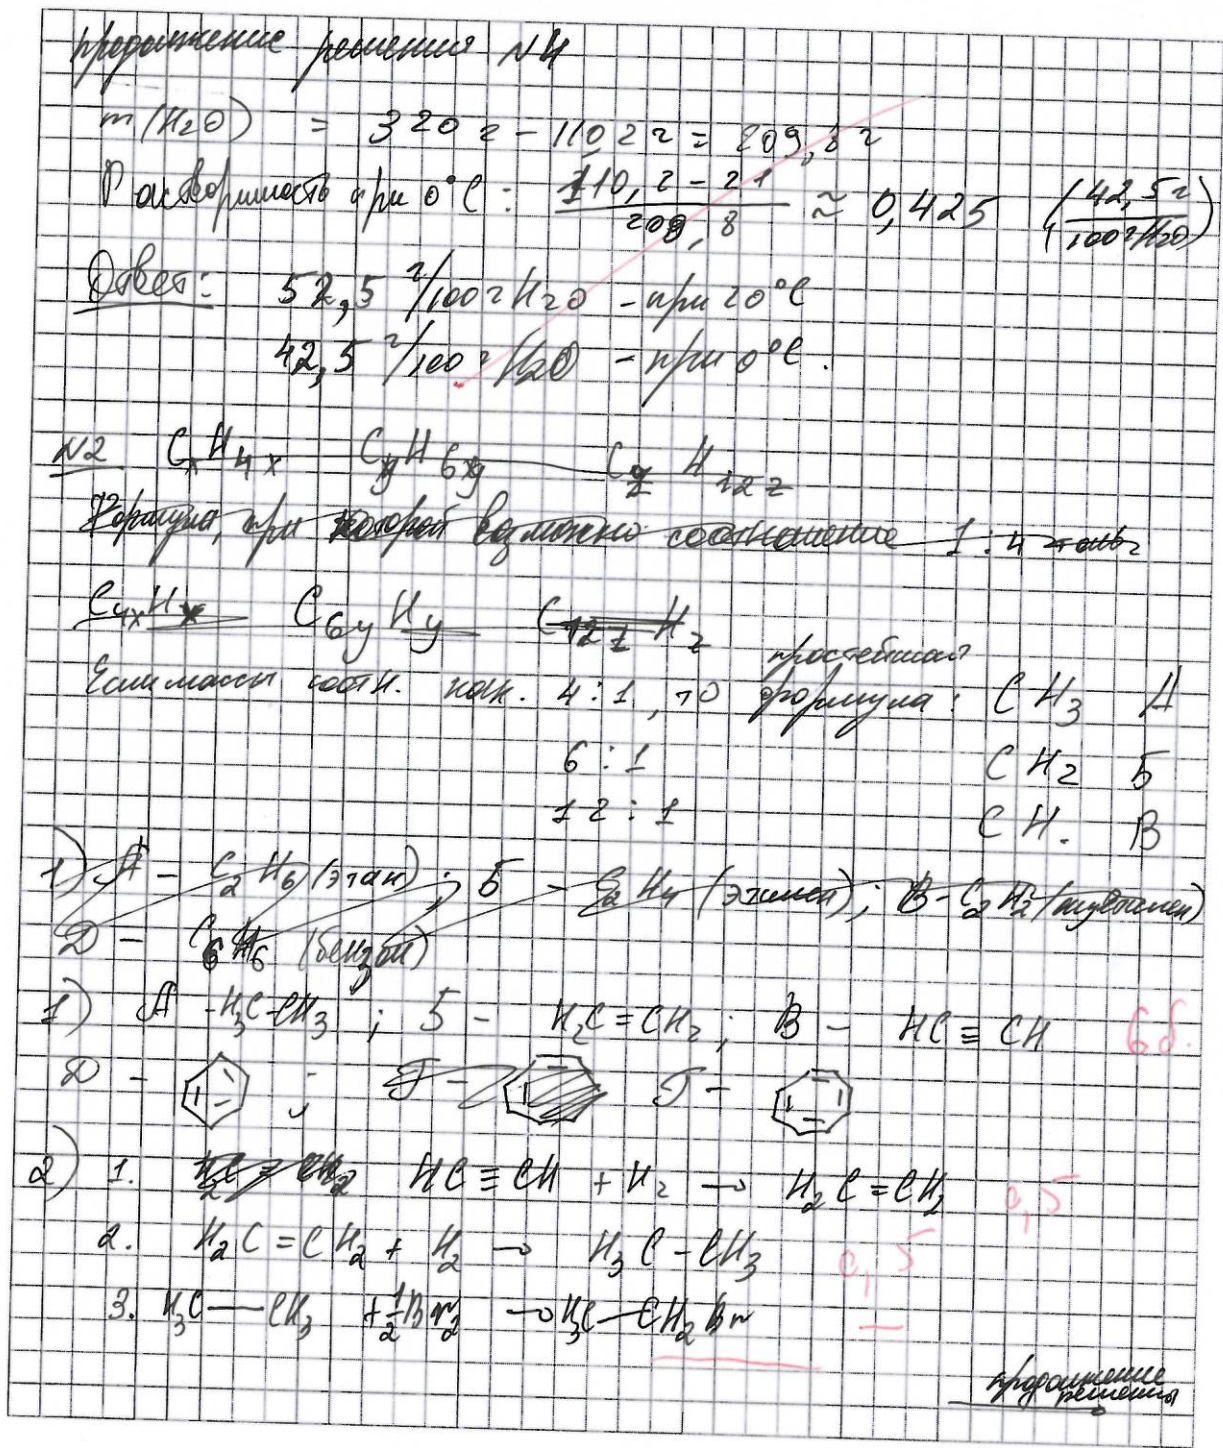 продолжение решения №4
m(H₂O) = 320 г - 110,2 г = 209,8 г
Растворимость при 0°C: (110,2 - 21)/209,8 ≈ 0,425 (42,5 г/100 г H₂O)
Ответ: 52,5 г/100 г H₂O - при 20°C
42,5 г/100 г H₂O - при 0°C.
№2 CₓH₄ₓ CyH6y CzH12z
Формула, при которой возможно соотношение 1:4
C₄ₓHₓ C6yHy C12zHz
Если массы соотн. как 4:1, то простейшая формула: CH₃ А
6:1 CH₂ Б
12:1 CH. В
1) А - C₂H₆ (этан); Б - C₂H₄ (этилен); В - C₂H₂ (ацетилен)
Д - C₆H₆ (бензол)
1) А - H₃C-CH₃; Б - H₂C=CH₂; В - HC≡CH 6б.
Д - ; Г - Г -
2) 1. H₂C=CH₂ HC≡CH + H₂ → H₂C=CH₂ 0,5
2. H₂C=CH₂ + H₂ → H₃C-CH₃ 0,5
3. H₃C—CH₃ + ½Br₂ → H₃C—CH₂Br —
продолжение решения